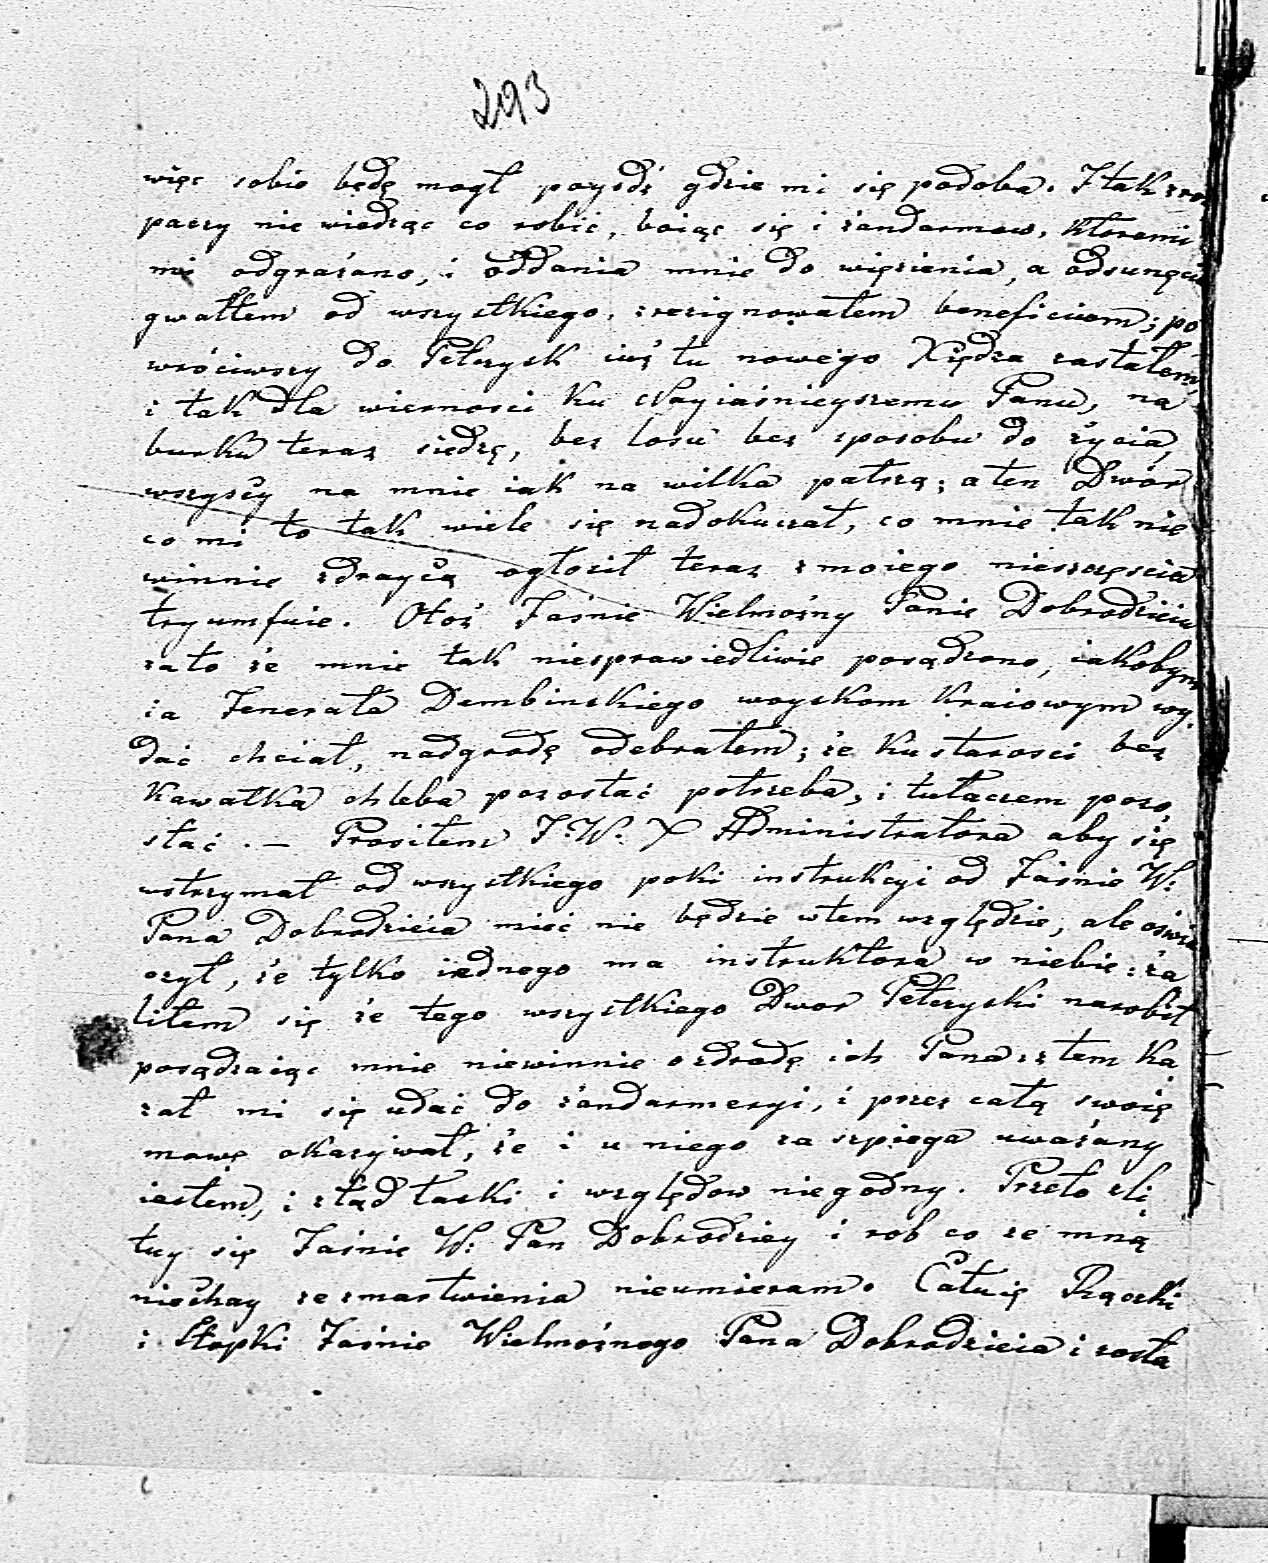 293
więc sobie będę mogł poyśdź gdzie mi się podoba. I tak zroz
paczy nie wiedząc co robić, boiąc się i żandarmow, któremi
mi odgrażano, i oddania mnie do więzienia, a odsunęcia
gwałtem od wszystkiego, zrezignowałem beneficium; po
wróciwszy do Pełczysk iuż tu nowego Xiędza zastałem,
i tak dla wiernosci ku Nayiaśnieyszemu Panu, na
burku teraz siedzę, bez losu bez sposobu do życia,
wszyscy na mnie iak na wilka patrzą; a ten Dwór
co mi to tak wiele się nadokuczał, co mnie tak nie
winnie zdraycą ogłosił teraz z moiego nieszczęscia
tryumfuie. Otoż Jaśnie Wielmożny Panie Dobrodzieiu
zato że mnie tak niesprawiedliwie posądzono, iakobym
ia Jenerała Dembinskiego woyskom kraiowym wy,
dać chciał, nadgrodę odebrałem; że ku starosci bez
kawałka chleba pozostać potrzeba, i tułaczem pozo
stać. — Prosiłem J:W: X Administratora aby się
wstrzymał od wszystkiego poki instrukcyi od Jaśnie W:
Pana Dobrodzieia mieć nie będzie wtem względzie, ale oświa
czył, że tylko iednego ma instruktora w niebie: ża
liłem się że tego wszystkiego Dwor Pełczyski narobił
posądzaiąc mnie niewinnie o zdradę ich Pana: z tem ka
zał mi się udać do żandarmeryi, i przez całą swoię
mowę okazywał, że i u niego za szpiega uważany
iestem, i ztąd łaski i względow niegodny. Przeto zli
tuy się Jaśnie W: Pan Dobrodziey i rob co ze mną
niechay ze zmartwienia nieumieram. Całuię Rączki
i Stopki Jaśnie Wielmożnego Pana Dobrodzieia i zosta